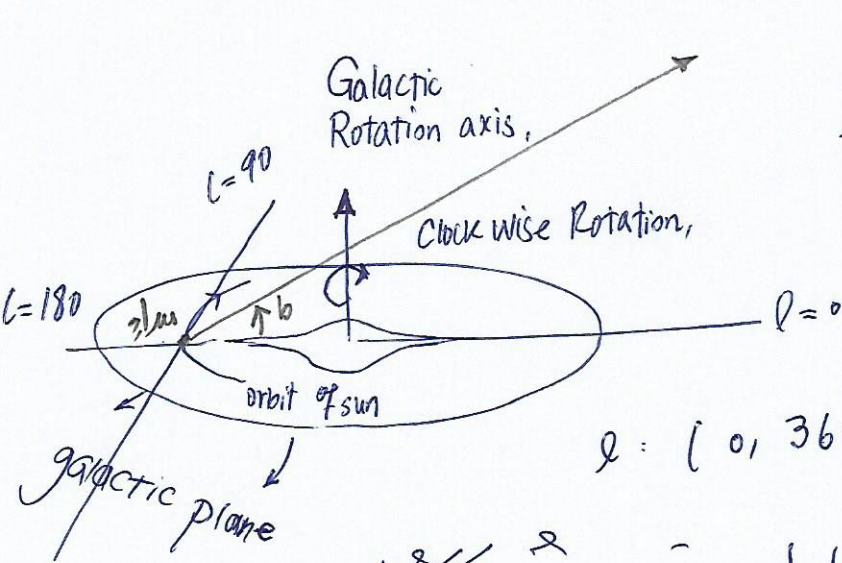 Galactic
Rotation axis,
l=90
Clock wise Rotation,
l=180
b
l=0
orbit of sun
l: (0, 36
galactic plane